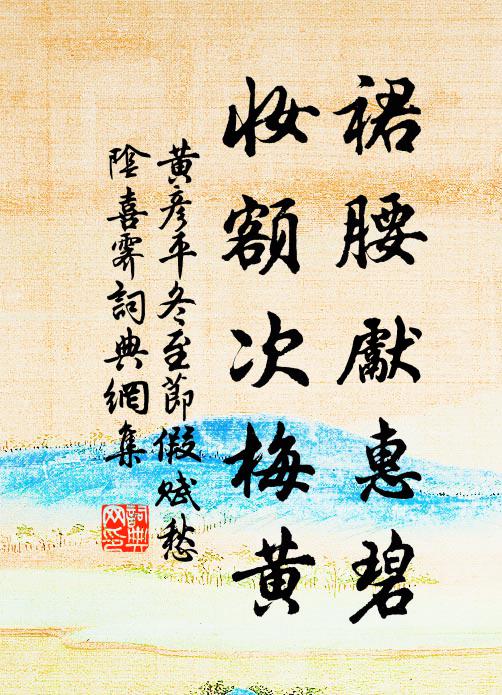 裙腰獻惠碧
妝額次梅黃
黃彥平冬至節假賦愁
陰喜霽詞典網集